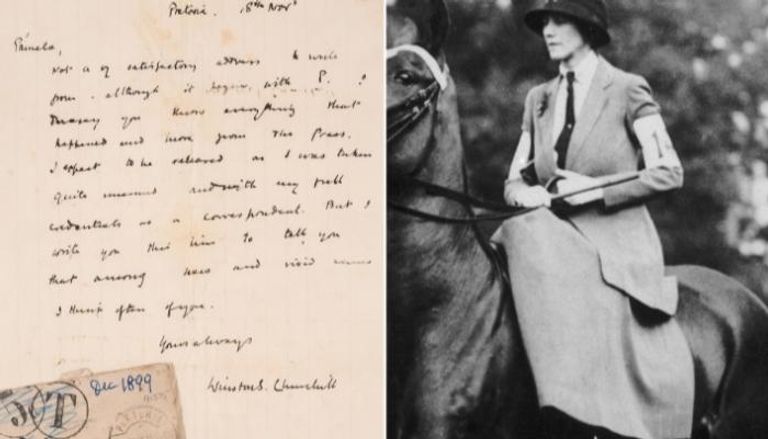 Pretoria. 18th Nov
Pamela,
Not a vy satisfactory address to write
from - although it begins with P. I
Daresay you know everything that
happened and more from the Press.
I expect to be released as I was taken
quite unarmed and with my full
credentials as a correspondent. But I
write you this line to tell you
that among new and vivid scenes
I think often of you.
Yours always
Winston S. Churchill
Dec 1899
T